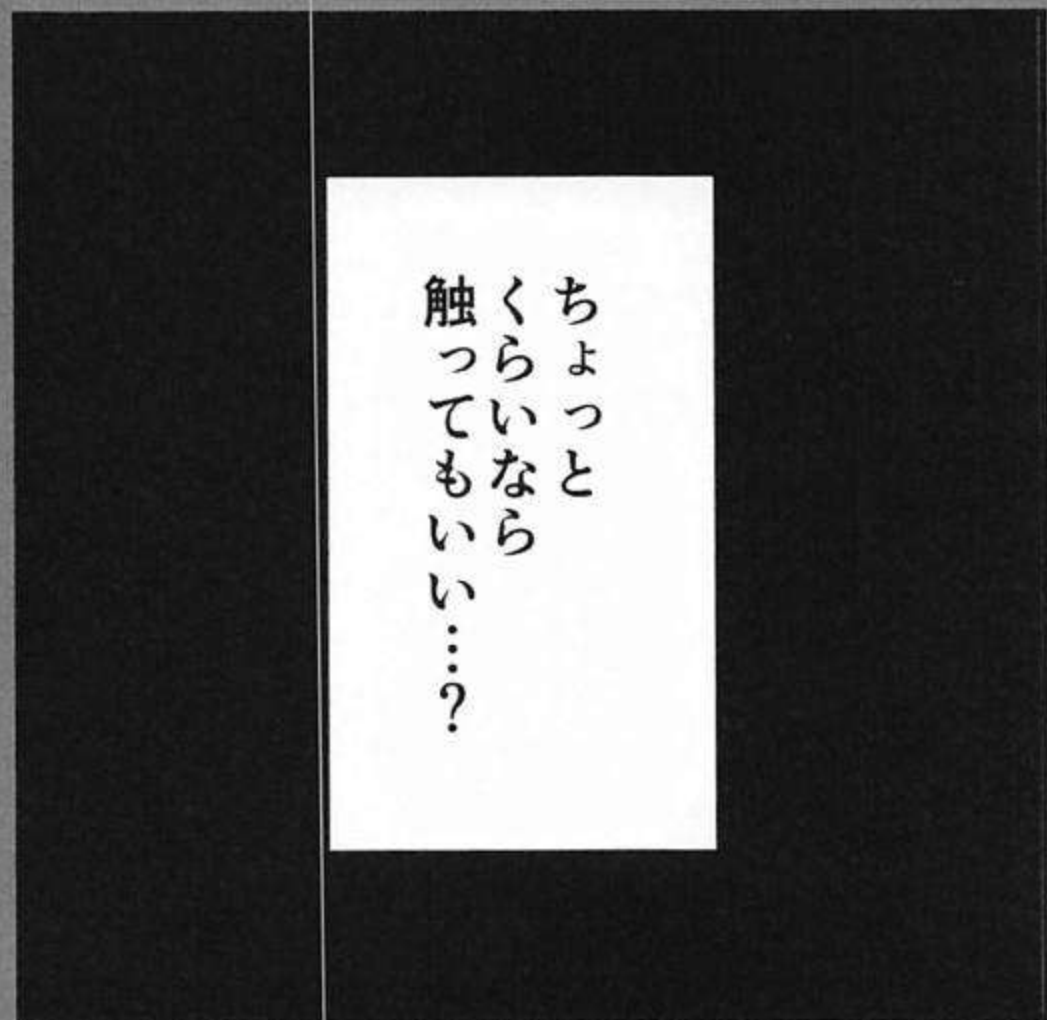 ちょっと
くらいなら
触ってもいい…?